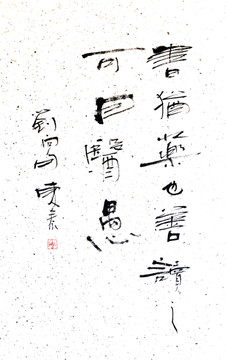 書猶藥也善讀之
可以醫愚
劉向句